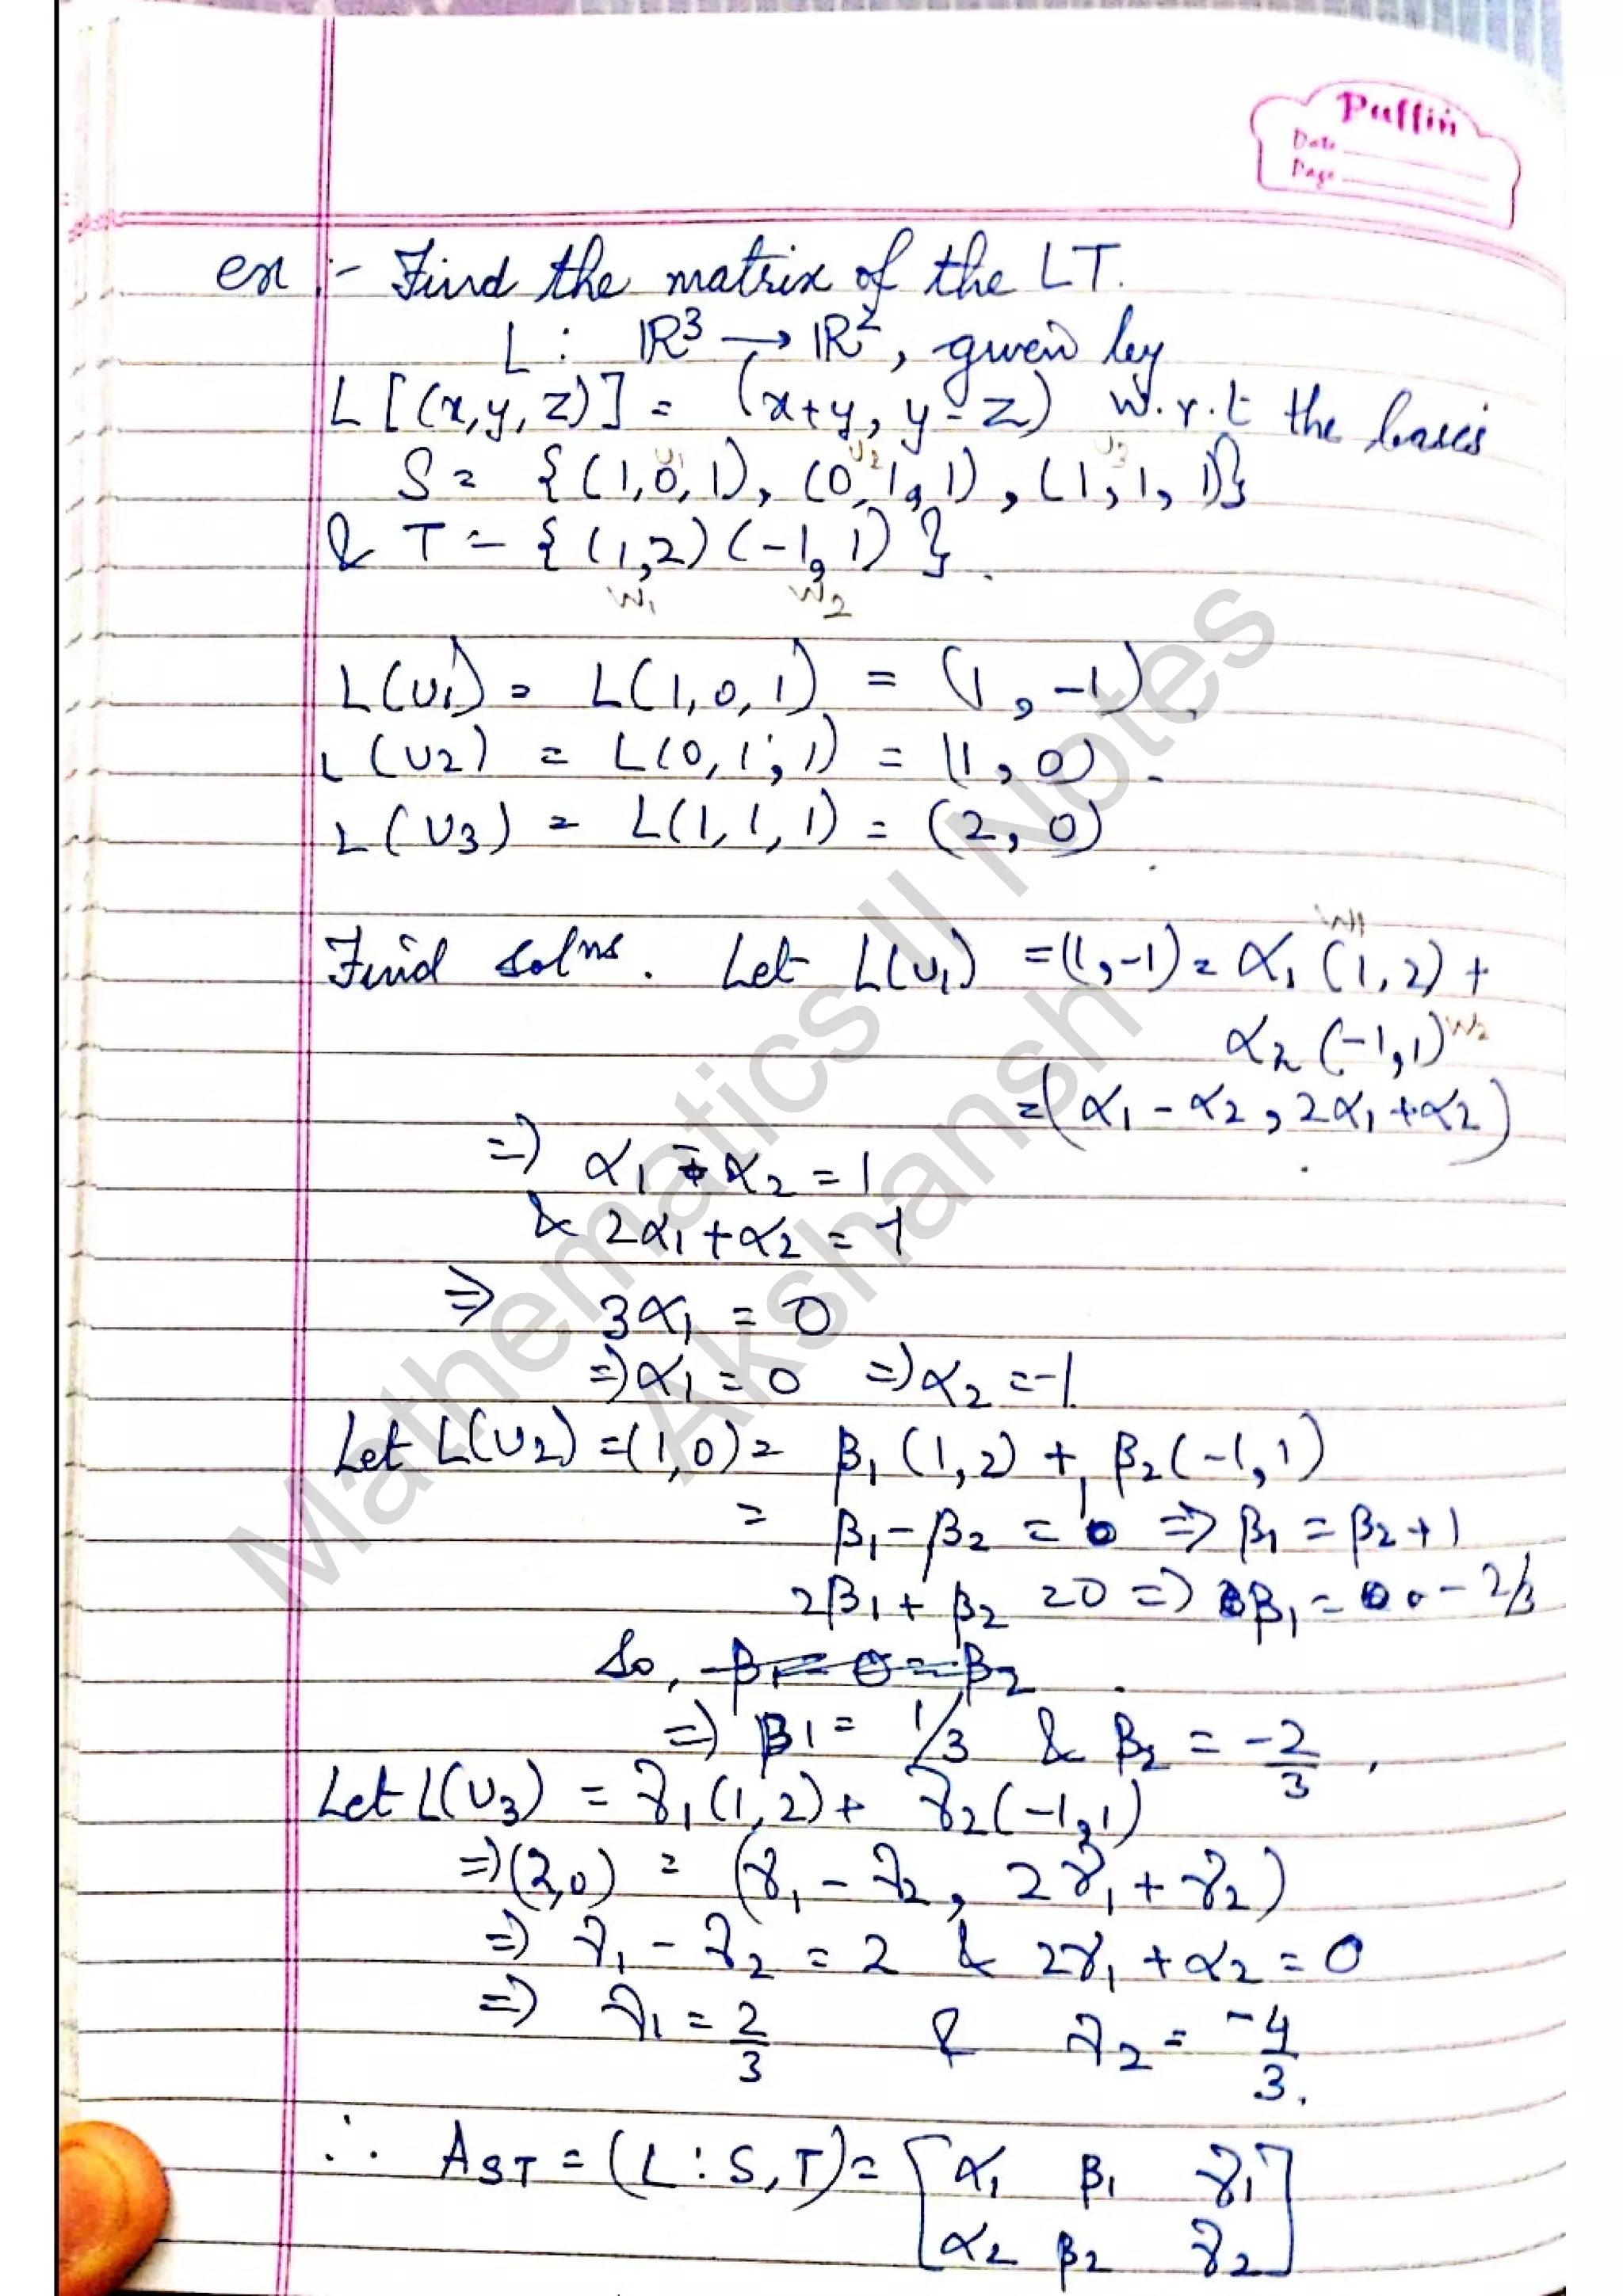 Puffin
Date
Page
ex :- Find the matrix of the LT.
L : ℝ³ → ℝ², given by
L[(x,y,z)] = (x+y, y-z) w.r.t the bases
u1 u2 u3
S = {(1,0,1), (0,1,1), (1,1,1)}
& T = {(1,2) (-1,1)}.
w1 w2
L(u1) = L(1,0,1) = (1,-1).
L(u2) = L(0,1,1) = (1,0).
L(u3) = L(1,1,1) = (2,0)
Find solns. Let L(u1) = (1,-1) = α1 (1,2) +
w1
α2 (-1,1) w2
= (α1 - α2, 2α1 + α2)
⇒ α1 - α2 = 1
& 2α1 + α2 = -1
⇒ 3α1 = 0
⇒ α1 = 0 ⇒ α2 = -1
Let L(u2) = (1,0) = β1 (1,2) + β2 (-1,1)
= β1 - β2 = 1 ⇒ β1 = β2 + 1
2β1 + β2 = 0 ⇒ β1 = - 2/3
So, β1 = 0 = β2
⇒ β1 = 1/3 & β2 = -2/3.
Let L(u3) = γ1 (1,2) + γ2 (-1,1)
⇒ (2,0) = (γ1 - γ2, 2γ1 + γ2)
⇒ γ1 - γ2 = 2 & 2γ1 + α2 = 0
⇒ γ1 = 2/3 & γ2 = -4/3.
∴ AST = (L : S, T) = [α1 β1 γ1
α2 β2 γ2]
Mathematics II Notes
Akshansh